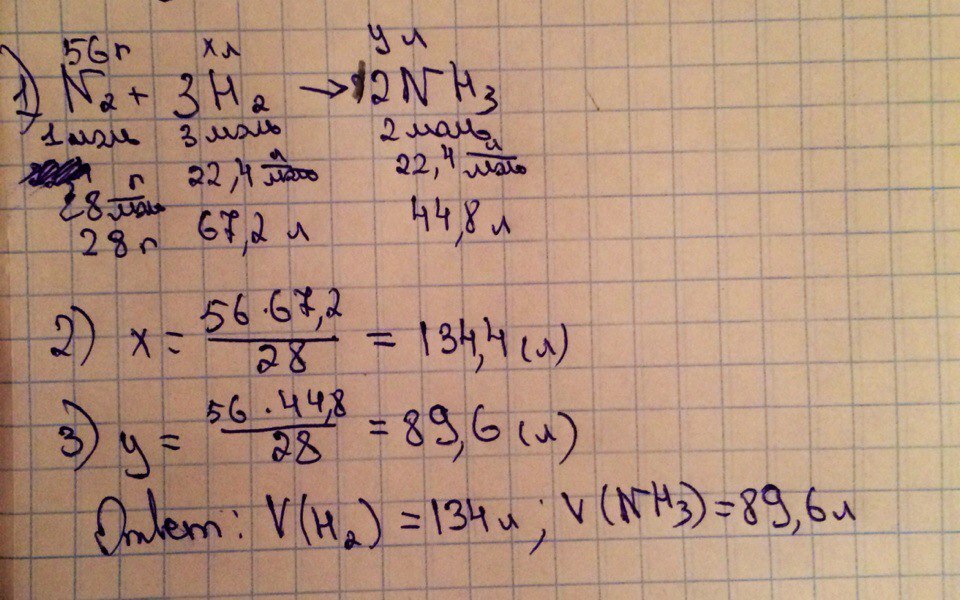 56 г х л у л
1) N₂ + 3H₂ → 2NH₃
1 моль 3 моль 2 моль
28 г/моль 22,4 л/моль 22,4 л/моль
28 г 67,2 л 44,8 л
2) x = 56 · 67,2 / 28 = 134,4 (л)
3) y = 56 · 44,8 / 28 = 89,6 (л)
Ответ: V(H₂) = 134 л ; V(NH₃) = 89,6 л